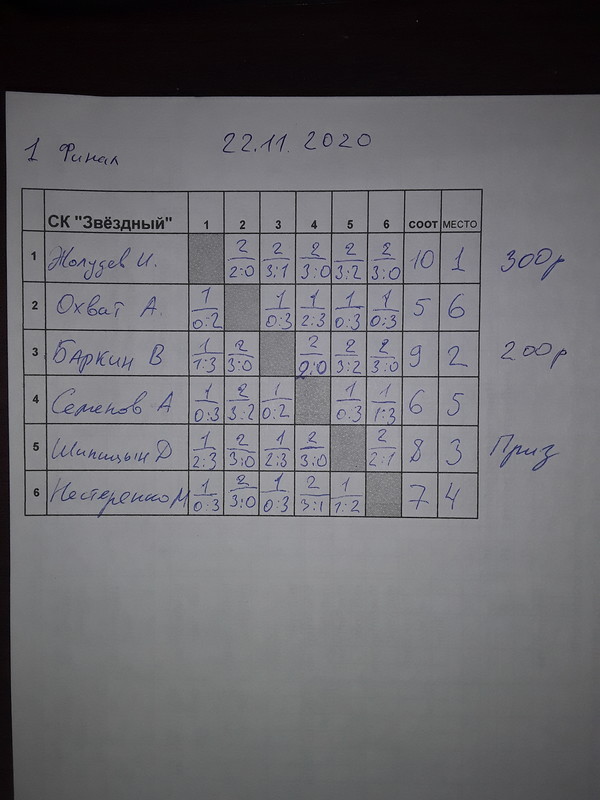 1 Финал 22.11.2020
СК "Звёздный" 1 2 3 4 5 6 СООТ МЕСТО
1 Жолудев И. 2/2:0 2/3:1 2/3:0 2/3:2 2/3:0 10 1 300р
2 Охват А. 1/0:2 1/0:3 1/2:3 1/0:3 1/0:3 5 6
3 Баркин В 1/1:3 2/3:0 2/2:0 2/3:2 2/3:0 9 2 200р
4 Семенов А 1/0:3 2/3:2 1/0:2 1/0:3 1/1:3 6 5
5 Шипицын Д 1/2:3 2/3:0 1/2:3 2/3:0 2/2:1 8 3 Приз
6 Нестеренко М 1/0:3 2/3:0 1/0:3 2/3:1 1/1:2 7 4